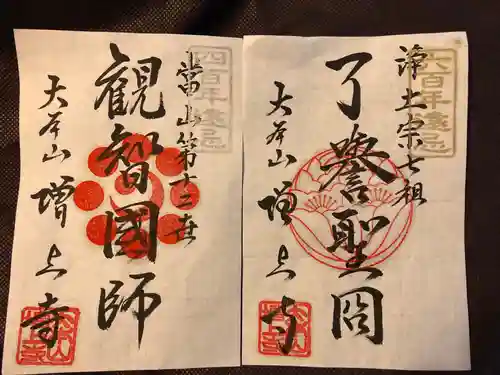 六百年遠忌
浄土宗七祖
了誉聖冏
大本山
増上寺
四百年遠忌
當山第十二世
観智國師
大本山
増上寺